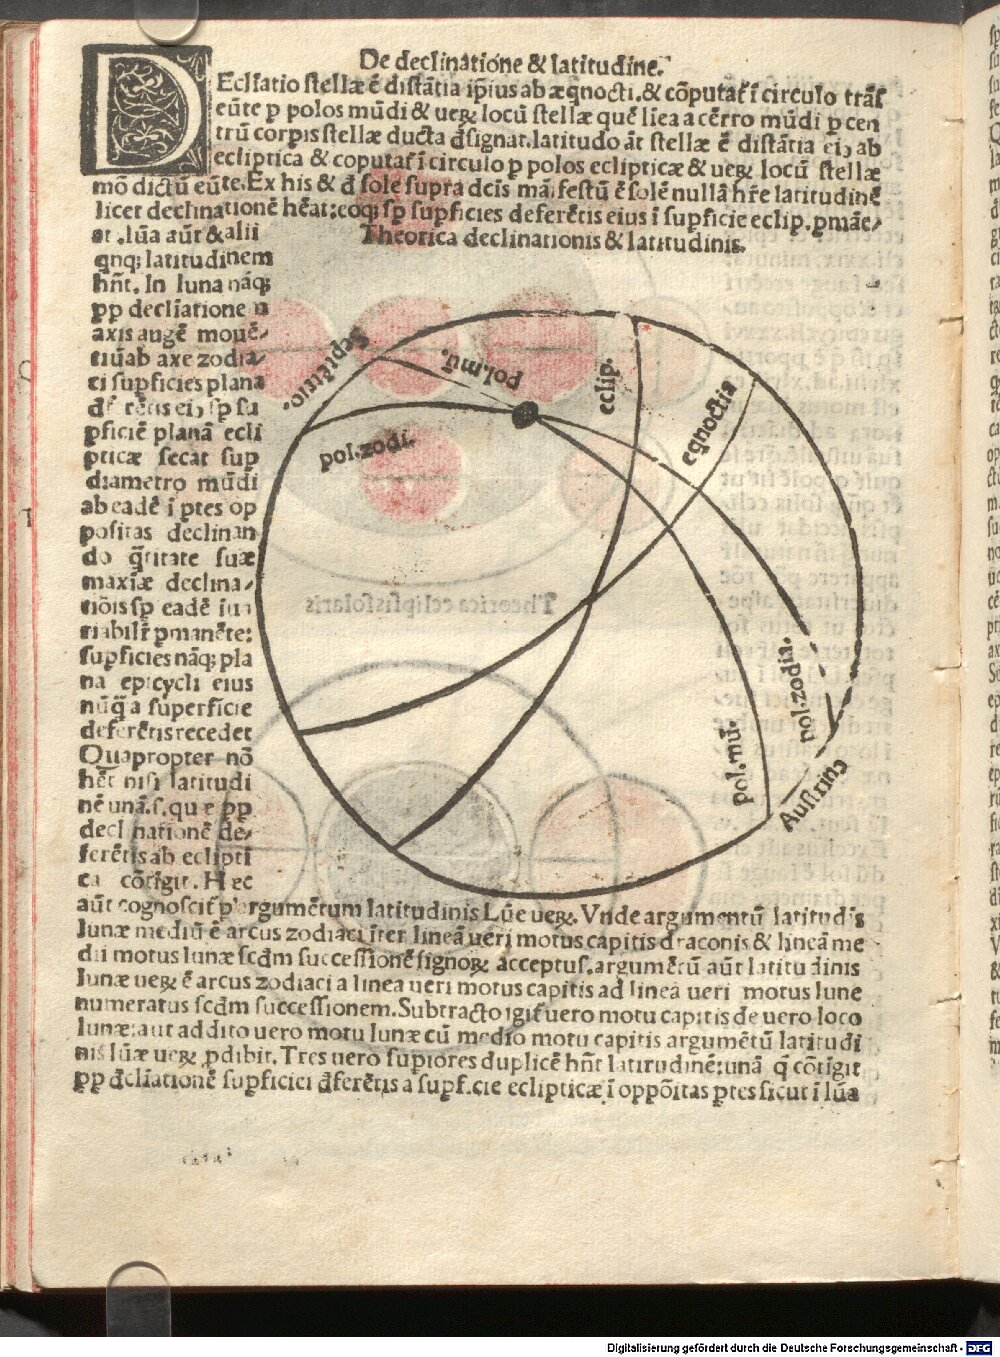 De declinatione & latitudine.
DEcliatio stellæ ē distātia ipius ab æqnocti. & cōputat̄ ī circulo trāſ
eūte p polos mūdi & ueꝝ locū stellæ quē liea a cētro mūdi p cen
trū corpis stellæ ducta dſignat. latitudo āt stellæ ē distātia eiꝯ ab
ecliptica & coputat̄ ī circulo p polos eclipticæ & ueꝝ locū stellæ
mō dictū eūte. Ex his & d̄ sole supra dc̄is māifestū ē solē nullā hr̄e latitudinē
licet declinationē hēat: eoqꝫ sp supficies deferētis eius ī supficie eclip. pmāe/
at. lūa aūt & alii
qnqꝫ latitudinem
hn̄t. In luna nāqꝫ
pp decliatione a
axis augē mouē/
tiū ab axe zodia/
ci supficies plana
df̄ rētis eiꝯ sp su
pficiē planā ecli
pticæ secat sup
diametro mūdi
ab eadē ī ptes op
positas declinan
do q̄titate suæ
maxiæ declina/
tiōis sp eadē īua
riabilr̄ pmanēte:
supficies nāqꝫ pla
na epicycli eius
nūq̄ a superficie
deferētis recedet
Quapropter nō
hēt nisi latitudi
nē unā. s. quæ pp
declinationē de/
ferētis ab eclipti
ca cōtigit. Hec
Theorica declinationis & latitudinis.
Septētrio.
pol. mū.
eclip.
eqnoctia
pol. zodi.
pol. zodia.
pol. mū.
Austrinu
aūt cognoscit̄ p argumētum latitudinis Lūe ueꝝ. Vnde argumentū latitudīs
lunæ mediū ē arcus zodiaci īter lineā ueri motus capitis draconis & lineā me
dii motus lunæ scd̄m successionē signoꝝ acceptus. argumētū aūt latitudinis
lunæ ueꝝ ē arcus zodiaci a linea ueri motus capitis ad lineā ueri motus lune
numeratus scd̄m successionem. Subtracto igit̄ uero motu capitis de uero loco
lunæ: aut addito uero motu lunæ cū medio motu capitis argumētū latitudi
nis lūæ ueꝝ pdibit. Tres uero supiores duplicē hn̄t latitudinē: unā q̄ cōtigit
pp d̄cliationē supficiei d̄ferētis a supficie eclipticæ ī oppōitas ptes sicut ī lūa
Digitalisierung gefördert durch die Deutsche Forschungsgemeinschaft - DFG